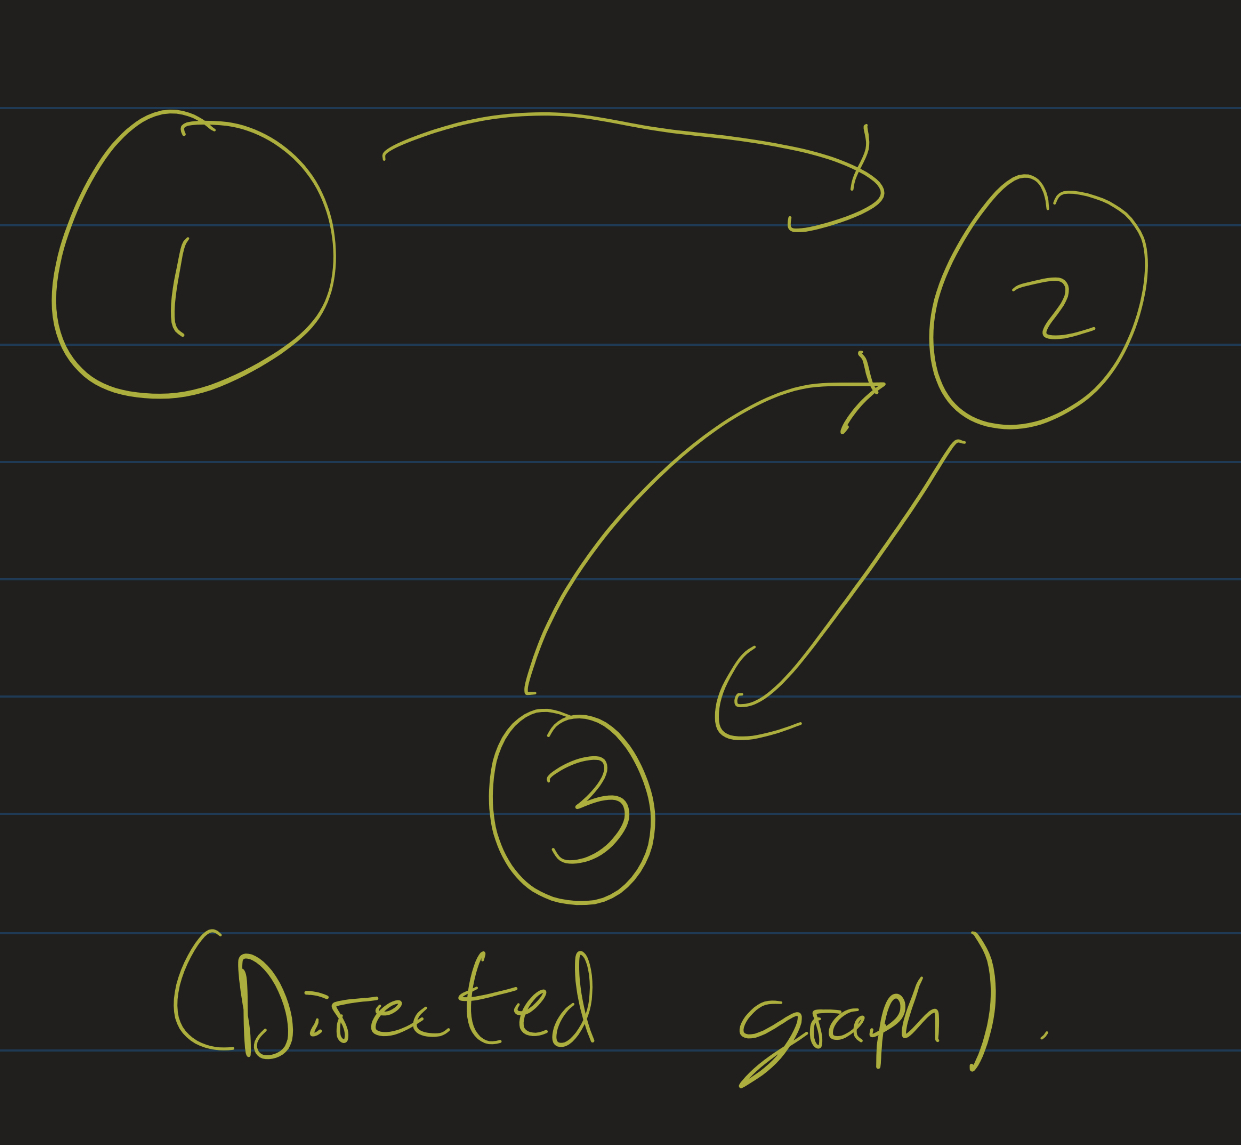 1
2
3
(Directed graph).